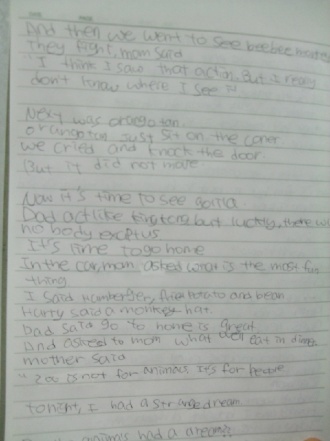 And then we went to see beebee monkey
They fight, mom said
"I think I saw that action. But I really
don't know where I see it"
Next was orangotan.
orangotan Just sit on the coner
we cried and knock the door.
But it did not move.
Now it's time to see gorilla
Dad act like king kong but luckly, there w
no body except us
It's time to go home
In the car, mom asked what is the most fun
thing
I said Hamberger, fried Potato and bean
Harry said a monkey hat.
Dad said go to home is great.
And asked to mom what will eat in dinner
mother said
"Zoo is not for animals It's for people
tonight, I had a strange dream
animals had a dream?